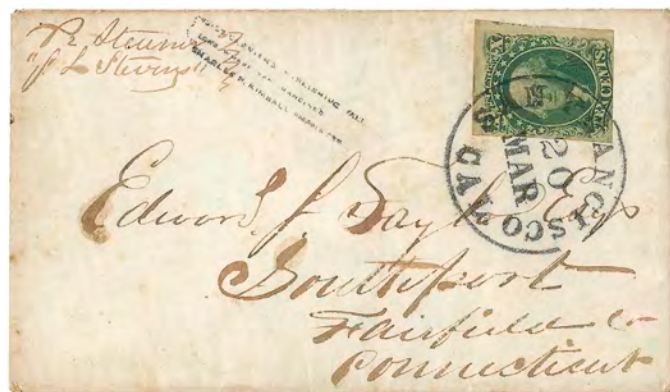 Pr Steamer
"J L Stevens"
CHARLES P. KIMBALL
X TEN CENTS X
SAN FRANCISCO CAL.
20
MAR
Edward J. Taylor Esqr
Southport
Fairfield Co
Connecticut